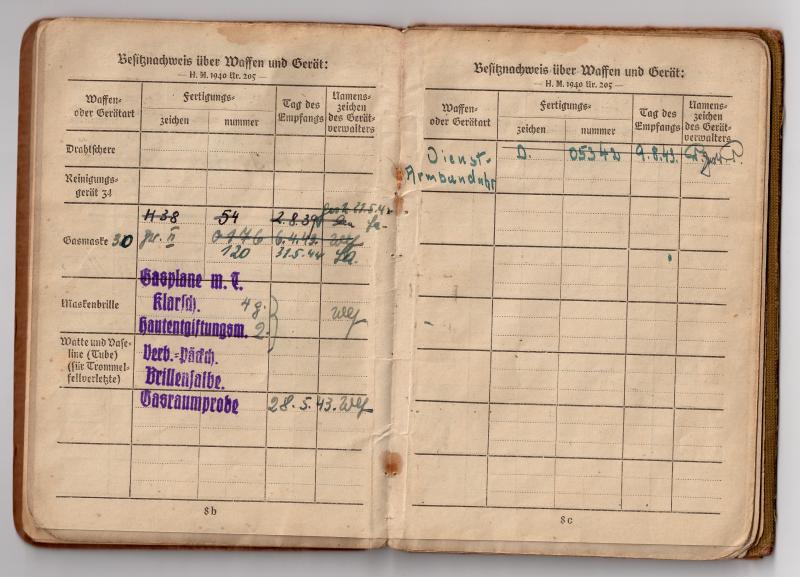 Besitznachweis über Waffen und Gerät:
— H. M. 1940 Nr. 205 —
Waffen- oder Gerätart
Fertigungs-
zeichen
nummer
Tag des Empfangs
Namens- zeichen des Gerät- verwalters
Drahtschere
Reinigungs- gerät 34
H 38 54 2.8.39
Gasmaske 30 gr. II 0176 6.4.43.
120 31.5.44
Gasplane m. T.
Klarsch.
Maskenbrille
Hautentgiftungsm. 2.
Watte und Vase- line (Tube) (für Trommel- fellverletzte)
Verb.-Päckch.
Brillensalbe.
Gasraumprobe 28.5.43.
8 b
Besitznachweis über Waffen und Gerät:
— H. M. 1940 Nr. 205 —
Waffen- oder Gerätart
Fertigungs-
zeichen
nummer
Tag des Empfangs
Namens- zeichen des Gerät- verwalters
Dienst- D. 05342 9.8.43.
Armbanduhr
8 c